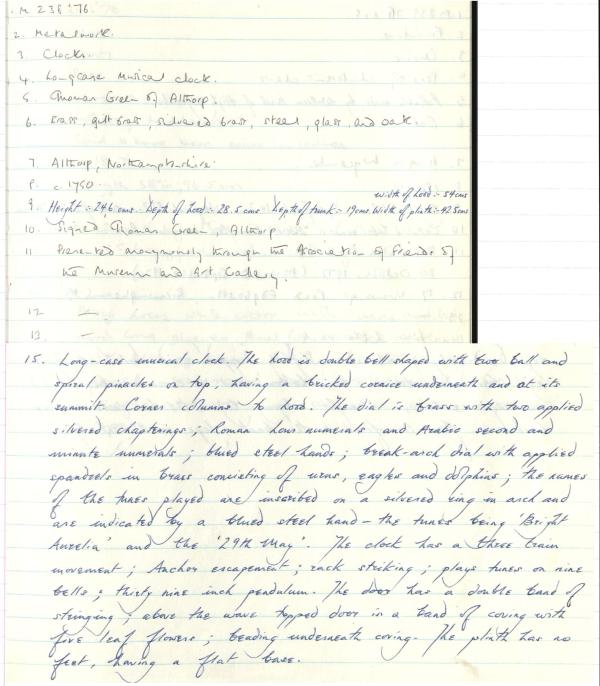 M 238 '76.
2. Metalwork.
3 Clocks
4. Longcase Musical clock.
5. Thomas Green of Althorp
6. Brass, gilt brass, silvered brass, steel, glass, and oak.
7. Althorp, Northamptonshire.
8. c 1750
width of hood :- 54cms
9. Height :- 246 cms. Depth of hood :- 28.5 cms Depth of trunk :- 19cms Width of plinth :- 42.5cms
10. Signed Thomas Green, Althorp
11 Presented anonymously through the Association of Friends of
the Museum and Art Gallery.
12 —
13. —
15. Long-case musical clock. The hood is double bell shaped with two ball and
spiral pinacles on top, having a bricked cornice underneath and at its
summit. Corner columns to hood. The dial is brass with two applied
silvered chapterings; Roman hour numerals and Arabic second and
minute numerals; blued steel hands; break-arch dial with applied
spandrels in brass consisting of urns, eagles and dolphins; the names
of the tunes played are inscribed on a silvered ring in arch and
are indicated by a blued steel hand – the tunes being 'Bright
Aurelia' and the '29th May'. The clock has a three train
movement; Anchor escapement; rack striking; plays tunes on nine
bells; thirty nine inch pendulum. The door has a double band of
stringing; above the wave topped door is a band of coving with
five leaf flowers; beading underneath coving. The plinth has no
feet, having a flat base.